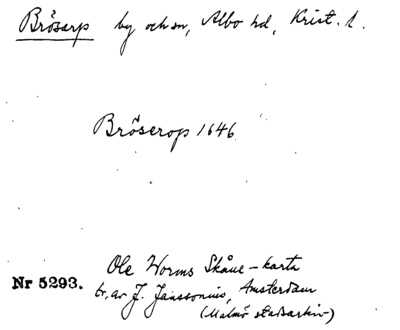 Brösarp by och sn, Albo hd, Krist. l.
Bröserop 1646.
Ole Worms Skåne-karta
Nr 5293. tr. av J. Janssonius, Amsterdam
(Malmö stadsarkiv)